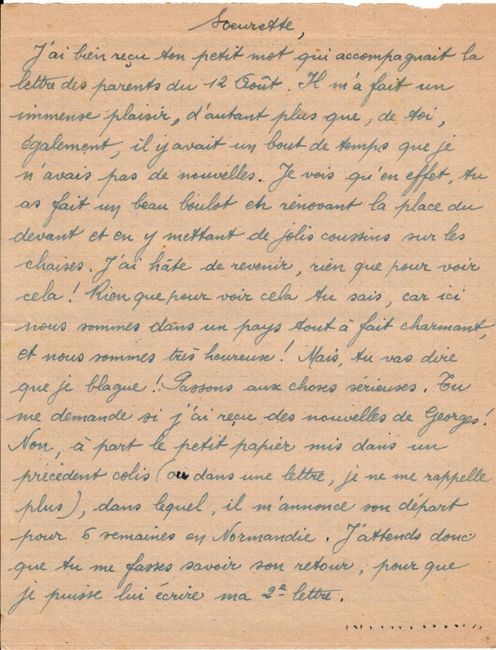 Soeurette,
J'ai bien reçu ton petit mot qui accompagnait la
lettre des parents du 12 Août. Il m'a fait un
immense plaisir, d'autant plus que, de toi,
également, il y avait un bout de temps que je
n'avais pas de nouvelles. Je vois qu'en effet, tu
as fait un beau boulot en rénovant la place du
devant et en y mettant de jolis coussins sur les
chaises. J'ai hâte de revenir, rien que pour voir
cela ! Rien que pour voir cela tu sais, car ici
nous sommes dans un pays tout à fait charmant,
et nous sommes très heureuse ! Mais, tu vas dire
que je blague ! Passons aux choses sérieuses. Tu
me demande si j'ai reçu des nouvelles de Georges !
Non, à part le petit papier mis dans un
précédent colis (ou dans une lettre, je ne me rappelle
plus), dans lequel, il m'annonce son départ
pour 6 semaines en Normandie. J'attends donc
que tu me fasses savoir son retour, pour que
je puisse lui écrire ma 2e lettre.